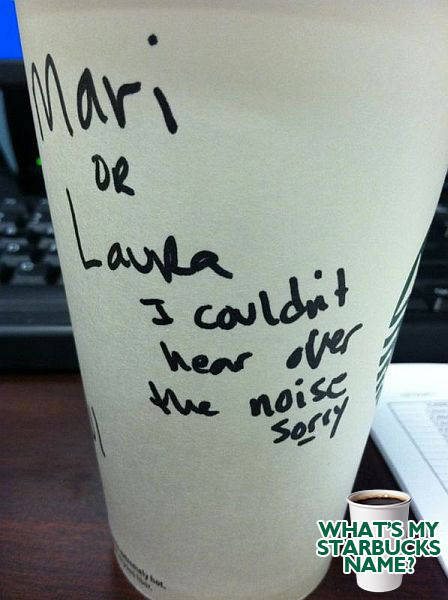 Mari
OR
Laura
I couldn't
hear over
the noise
sorry
WHAT'S MY
STARBUCKS
NAME?